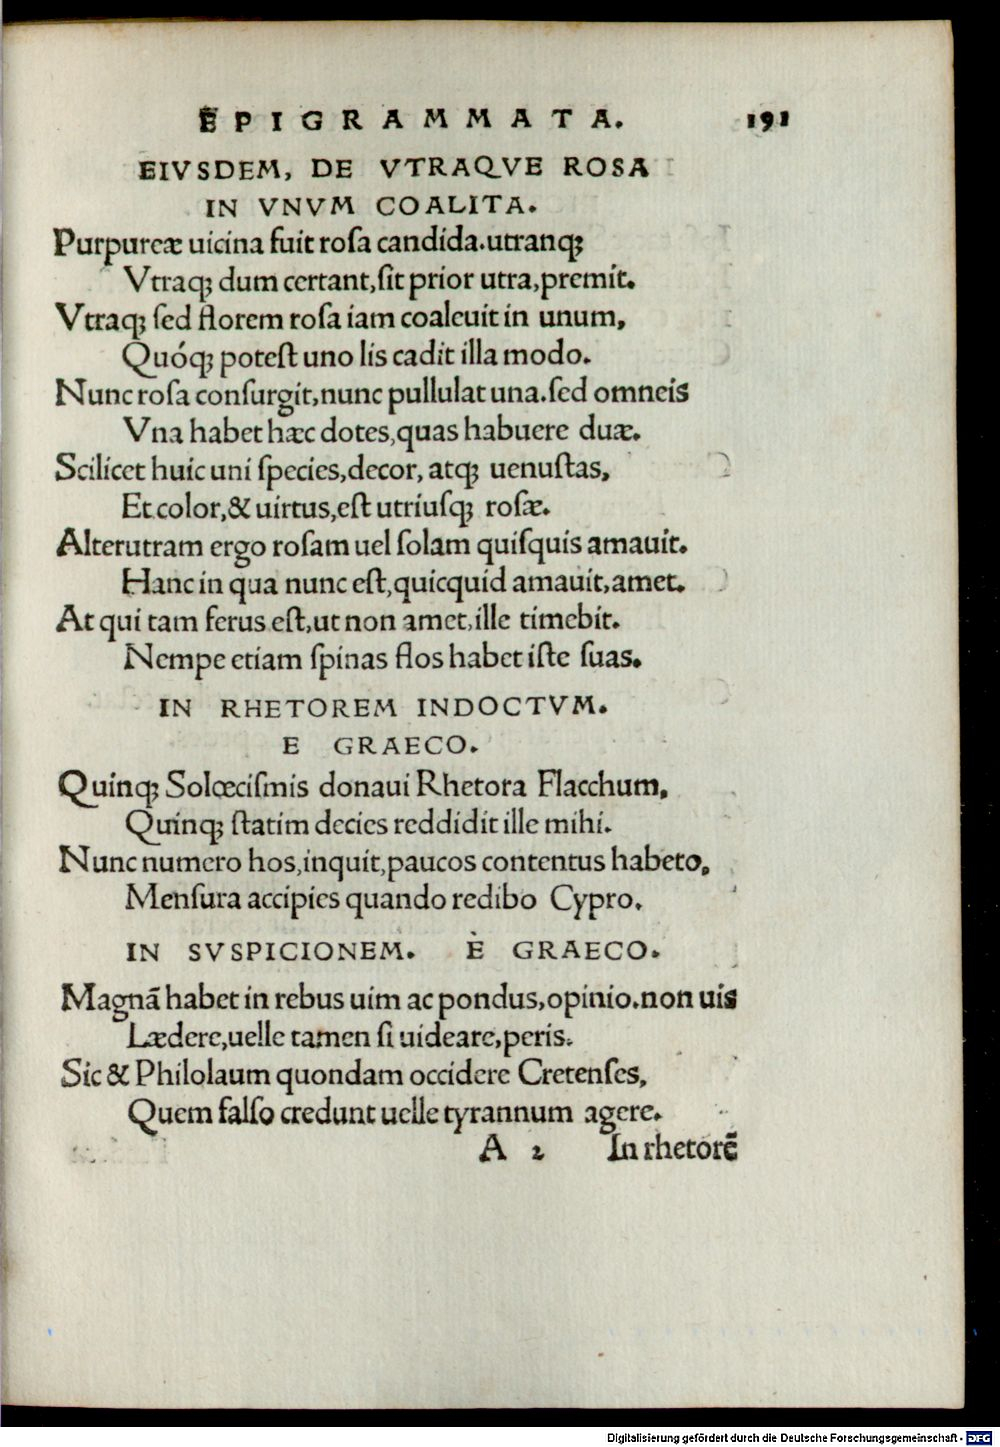 EPIGRAMMATA. 191
EIVSDEM, DE VTRAQVE ROSA
IN VNVM COALITA.
Purpureæ uicina fuit roſa candida.utranqꝫ
Vtraqꝫ dum certant,ſit prior utra,premit.
Vtraqꝫ ſed florem roſa iam coaleuit in unum,
Quóqꝫ poteſt uno lis cadit illa modo.
Nunc roſa conſurgit,nunc pullulat una.ſed omneis
Vna habet hæc dotes,quas habuere duæ.
Scilicet huic uni ſpecies,decor, atqꝫ uenuſtas,
Et color,& uirtus,eſt utriuſqꝫ roſæ.
Alterutram ergo roſam uel ſolam quiſquis amauit.
Hanc in qua nunc eſt,quicquid amauit,amet.
At qui tam ferus eſt,ut non amet,ille timebit.
Nempe etiam ſpinas flos habet iſte ſuas.
IN RHETOREM INDOCTVM.
E GRAECO.
Quinqꝫ Solœciſmis donaui Rhetora Flacchum,
Quinqꝫ ſtatim decies reddidit ille mihi.
Nunc numero hos,inquit,paucos contentus habeto,
Menſura accipies quando redibo Cypro.
IN SVSPICIONEM. È GRAECO.
Magnã habet in rebus uim ac pondus,opinio.non uis
Lædere,uelle tamen ſi uideare,peris.
Sic & Philolaum quondam occidere Cretenſes,
Quem falſo credunt uelle tyrannum agere.
A 2 In rhetorẽ
Digitalisierung gefördert durch die Deutsche Forschungsgemeinschaft - DFG